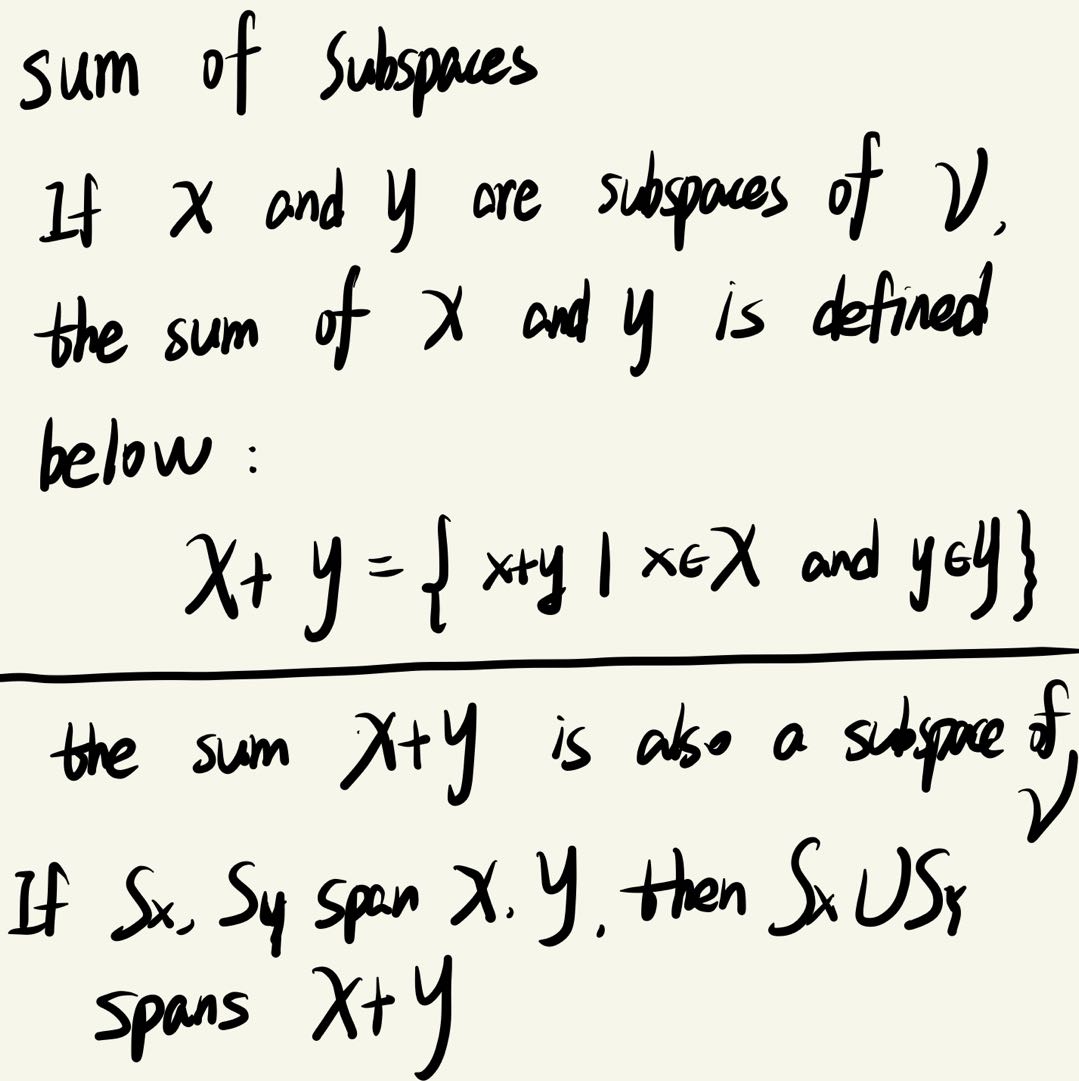 sum of Subspaces
If X and Y are subspaces of V,
the sum of X and Y is defined
below:
X+Y={x+y | x∈X and y∈Y}
the sum X+Y is also a subspace of
V
If Sx, Sy span X, Y, then Sx∪SY
spans X+Y